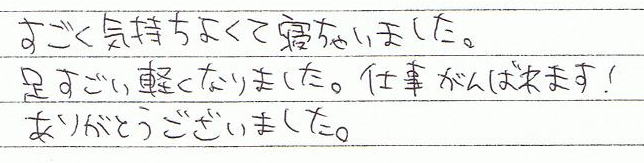 すごく気持ちよくて寝ちゃいました。
足すごい軽くなりました。仕事がんばれます!
ありがとうございました。